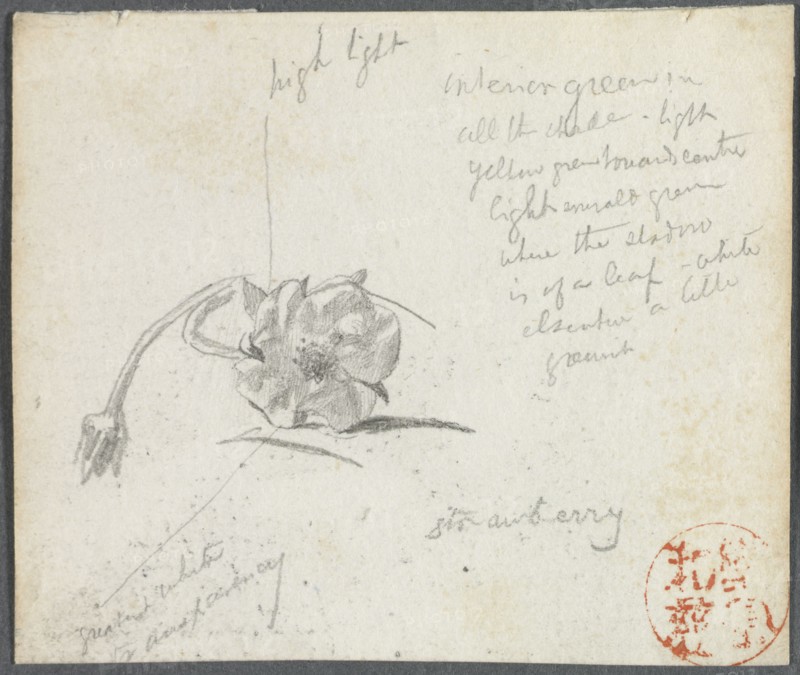 high light
interior green in
all the shade - light
yellow green towards centre
light emerald green
where the shadow
is of a leaf - white
elsewhere a little
greenish
strawberry
greatest white
transparency